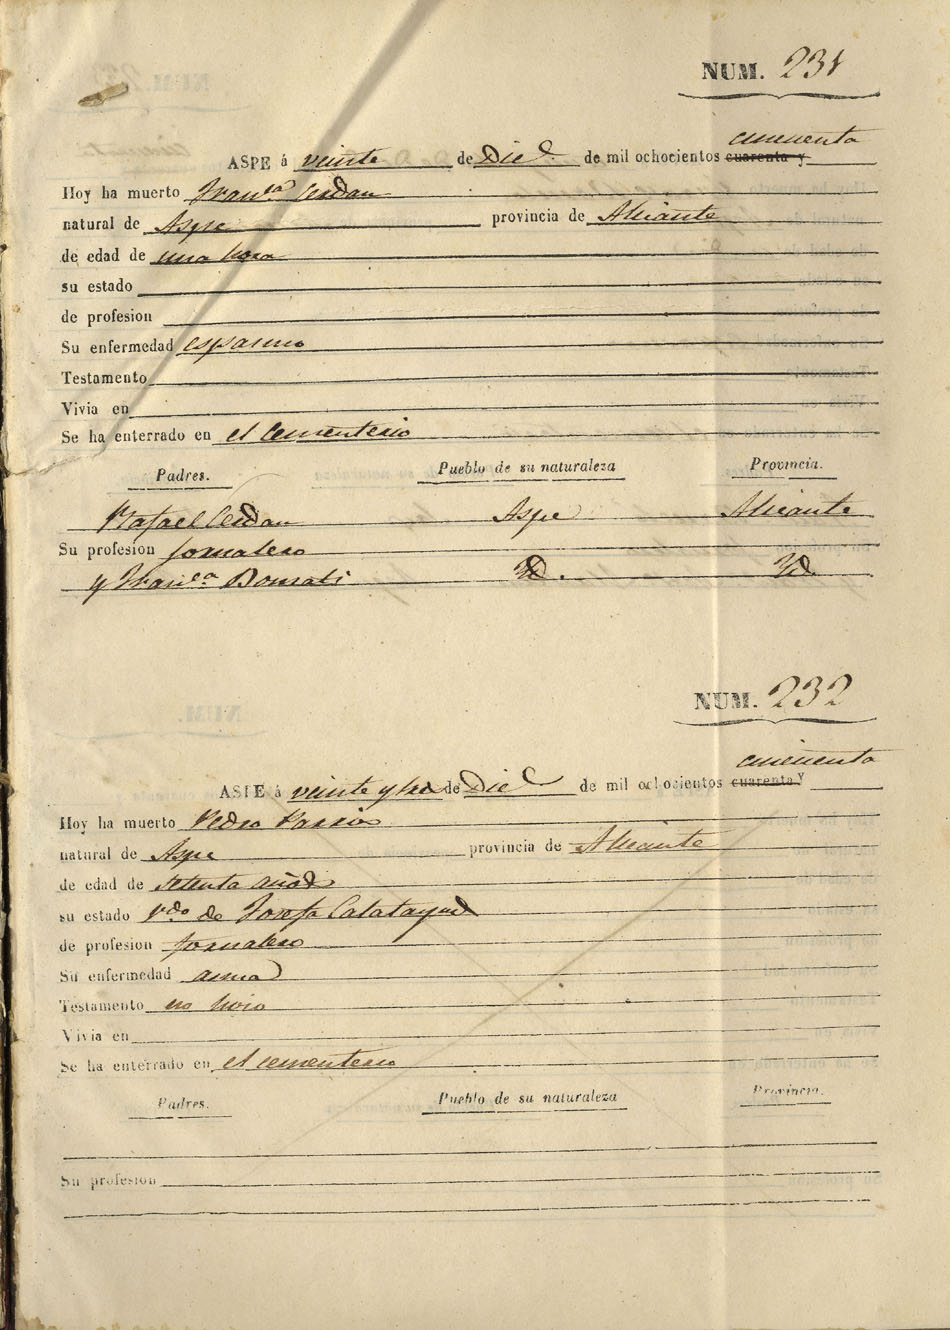 NUM. 231
cincuenta
ASPE á veinte de Dic.e de mil ochocientos cuarenta y
Hoy ha muerto Fran.ca Cerdan
natural de Aspe provincia de Alicante
de edad de una hora
su estado
de profesion
Su enfermedad espasmo
Testamento
Vivia en
Se ha enterrado en el Cementerio
Padres. Pueblo de su naturaleza Provincia.
Rafael Cerdan Aspe Alicante
Su profesion jornalero
y Fran.ca Yd. Yd.
NUM. 232
cincuenta
ASPE á veinte y tres de Dic.e de mil ochocientos cuarenta y
Hoy ha muerto Pedro
natural de Aspe provincia de Alicante
de edad de setenta años
su estado V.do de Josefa Calatayud
de profesion jornalero
Su enfermedad asma
Testamento no hizo
Vivia en
Se ha enterrado en el cementerio
Padres. Pueblo de su naturaleza Provincia.
Su profesion